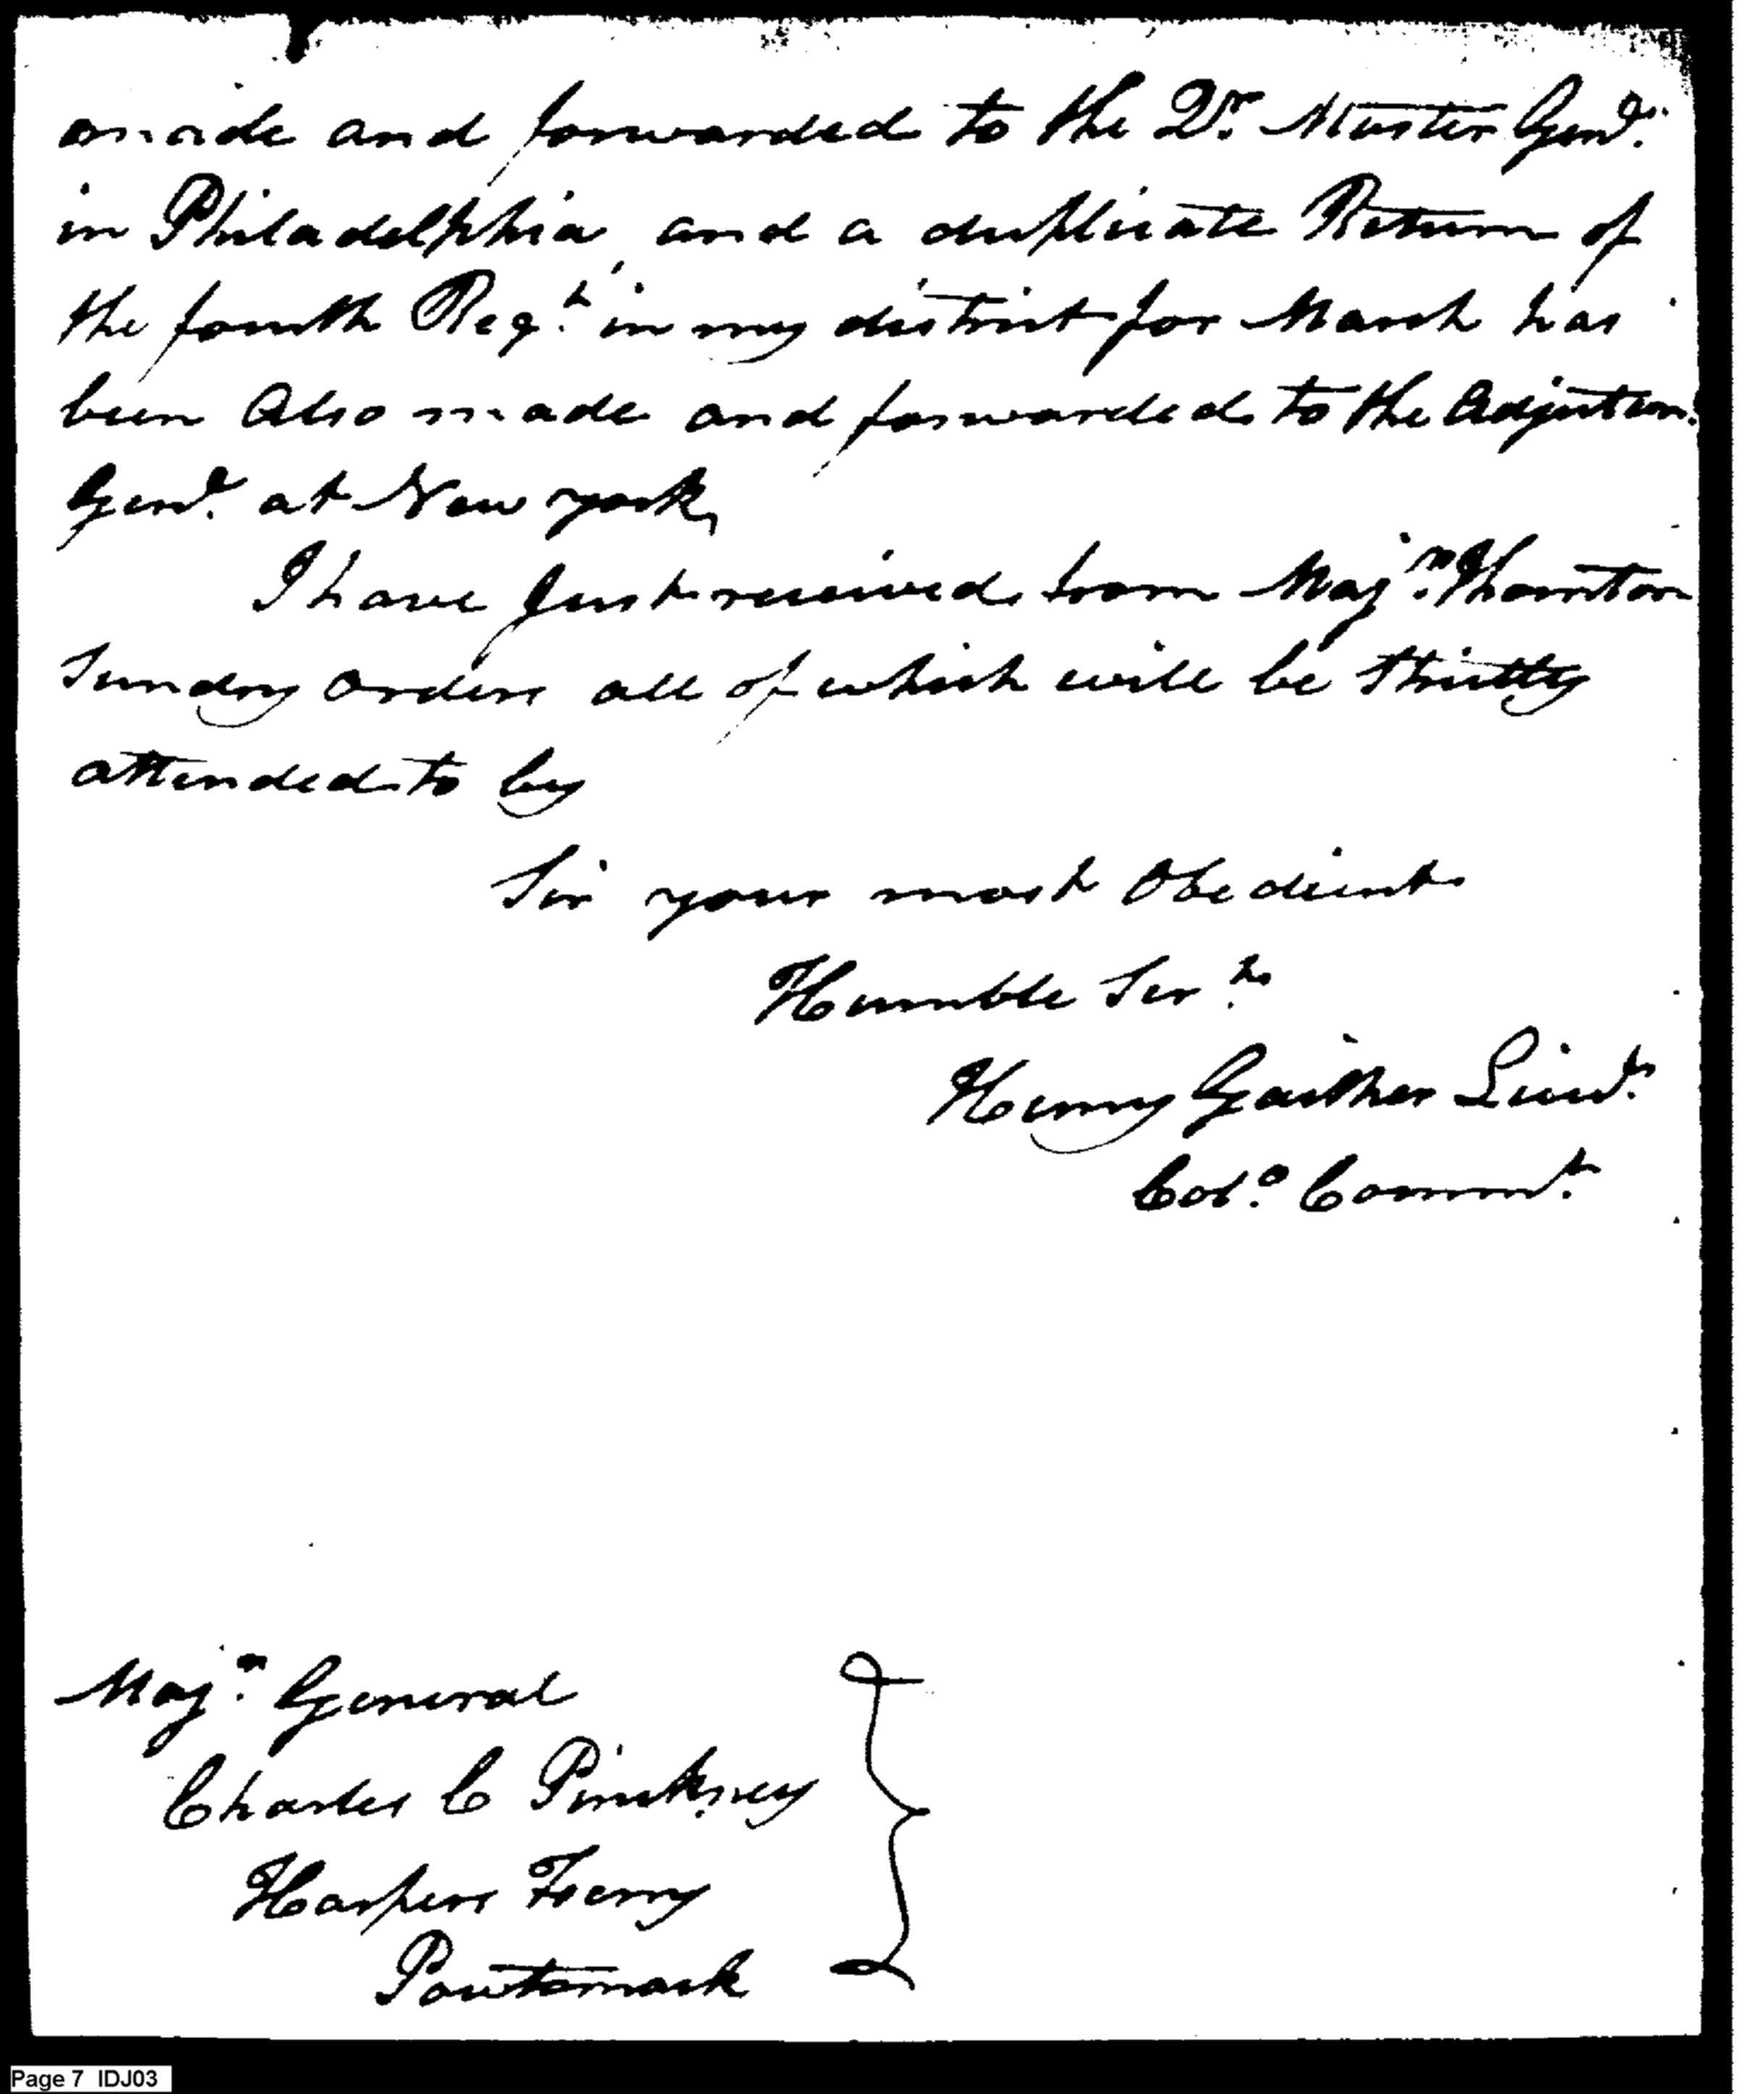 made and forwarded to the Qr. Master Genl.
in Philadelphia, and a duplicate Return of
the fourth Regt. in my district for March has
been Also made and forwarded to the Adjutan.
Genl. at New york,
I have Just received from Majr. Thornton
Sundry orders all of which will be strictly
attended to by
Sir your most Obedient
Humble Servt.
Henry Gaither Lieut.
Colo. Commt.
Majr. General
Charles C Pinkney
Harpers Ferry
Powtomack
Page 7 IDJ03